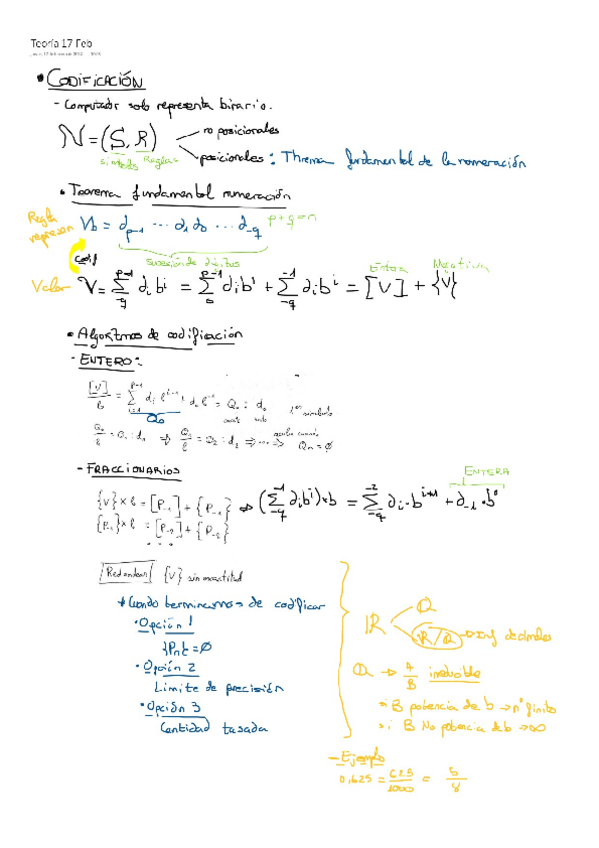 Teoría 17 Feb
• CODIFICACIÓN
- Computador solo representa binario.
N = (S, R)
no posicionales
posicionales : Threma fundamental de la numeración
símbolos Reglas
• Teorema fundamental numeración
Regla represen
Vb = d_{p-1} ... d_1 d_0 ... d_{-q} p+q=n
sucesión de dígitos
codif
Valor
V = Σ_{-q}^{p-1} d_i b^i = Σ_0^{p-1} d_i b^i + Σ_{-q}^{-1} d_i b^i = [V] + {V}
Entera
Negativa
• Algoritmos de codificación
- ENTERO:
[V]/b = Σ_{i=1}^{p-1} d_i b^{i-1} + d_0 b^{-1} = Q_0 : d_0
Q_0
Q_0/b = Q_1 : d_1 ⇒ Q_1/b = Q_2 : d_2 ⇒ ... ⇒ Q_n = Ø
- FRACCIONARIOS
ENTERA
{V} × b = [P_{-1}] + {P_{-1}} ⇒ (Σ_{-q}^{-1} d_i b^i) × b = Σ_{-q}^{-2} d_i · b^{i+1} + d_{-1} · b^0
{P_{-1}} × b = [P_{-2}] + {P_{-2}}
...
Redondear {V} sin exactitud
* Cuando terminamos de codificar
• Opción 1
{P_n} = Ø
• Opción 2
Limite de precisión
• Opción 3
Cantidad tasada
R
Q
R/Q → inf decimales
Q → A/B irreducible
B potencia de b → nº finito
B No potencia de b → ∞
- Ejemplo
0.625 = 625/1000 = 5/8